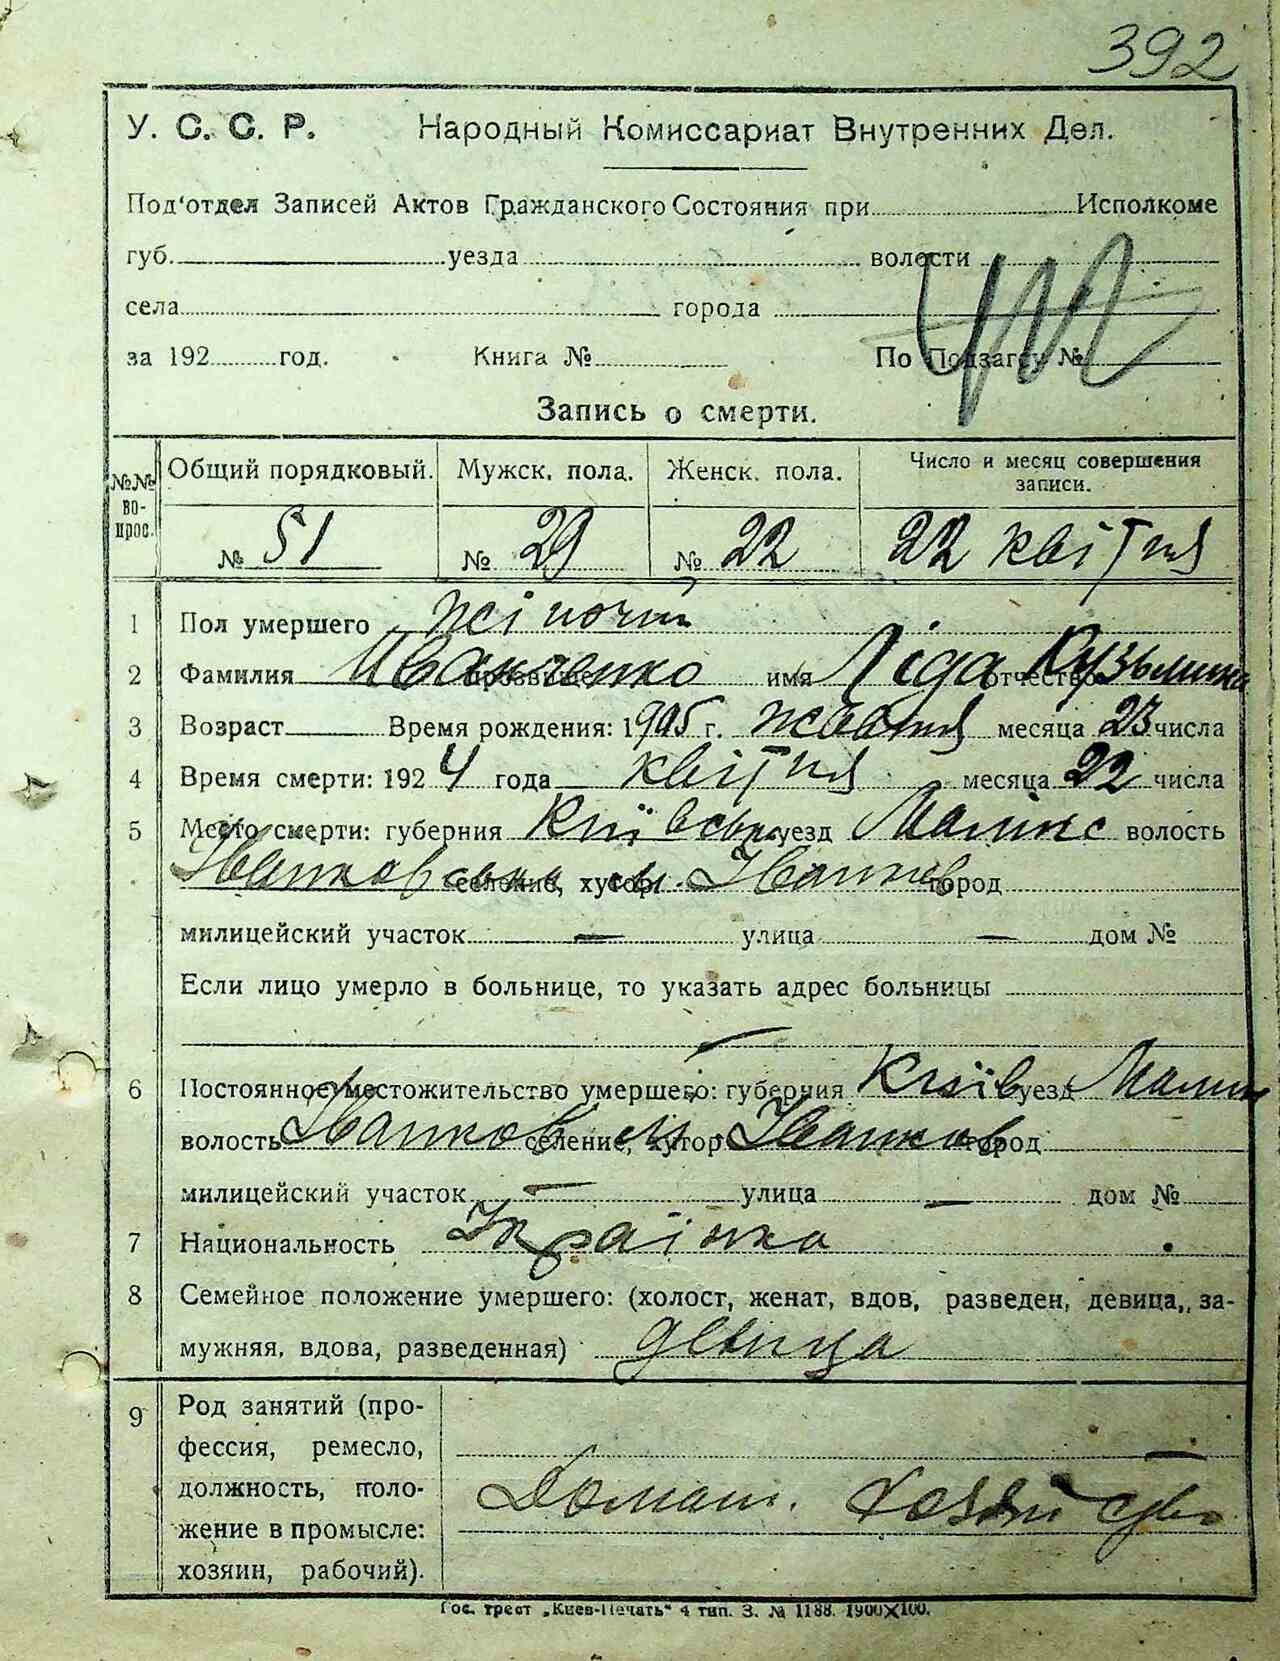 392
У. С. С. Р. Народный Комиссариат Внутренних Дел.
Под'отдел Записей Актов Гражданского Состояния при Исполкоме
губ. уезда волости
села города
за 192 год. Книга № По Подзагсу №
Запись о смерти.
№№ во-прос. Общий порядковый. Мужск. пола. Женск. пола. Число и месяц совершения записи.
№ 51 № 29 № 22 22 квітня
1 Пол умершего жіночий
2 Фамилия Иванченко прозвище имя Ліда отчество Кузьмина
3 Возраст Время рождения: 1905 г. жовтня месяца 23 числа
4 Время смерти: 1924 года квітня месяца 22 числа
5 Место смерти: губерния Київська уезд Малинс волость
Іванковська селение, хутор м. Іванков город
милицейский участок — улица — дом №
Если лицо умерло в больнице, то указать адрес больницы
—
6 Постоянное местожительство умершего: губерния Київ уезд Малин
волость Іванков селение, хутор м. Іванков город
милицейский участок — улица — дом №
7 Национальность Українка
8 Семейное положение умершего: (холост, женат, вдов, разведен, девица, за-
мужняя, вдова, разведенная) девица
9 Род занятий (про-
фессия, ремесло,
должность, поло- Домаш. хозяйство
жение в промысле:
хозяин, рабочий).
Гос. трест „Киев-Печать" 4 тип. З. № 1188. 1900X100.